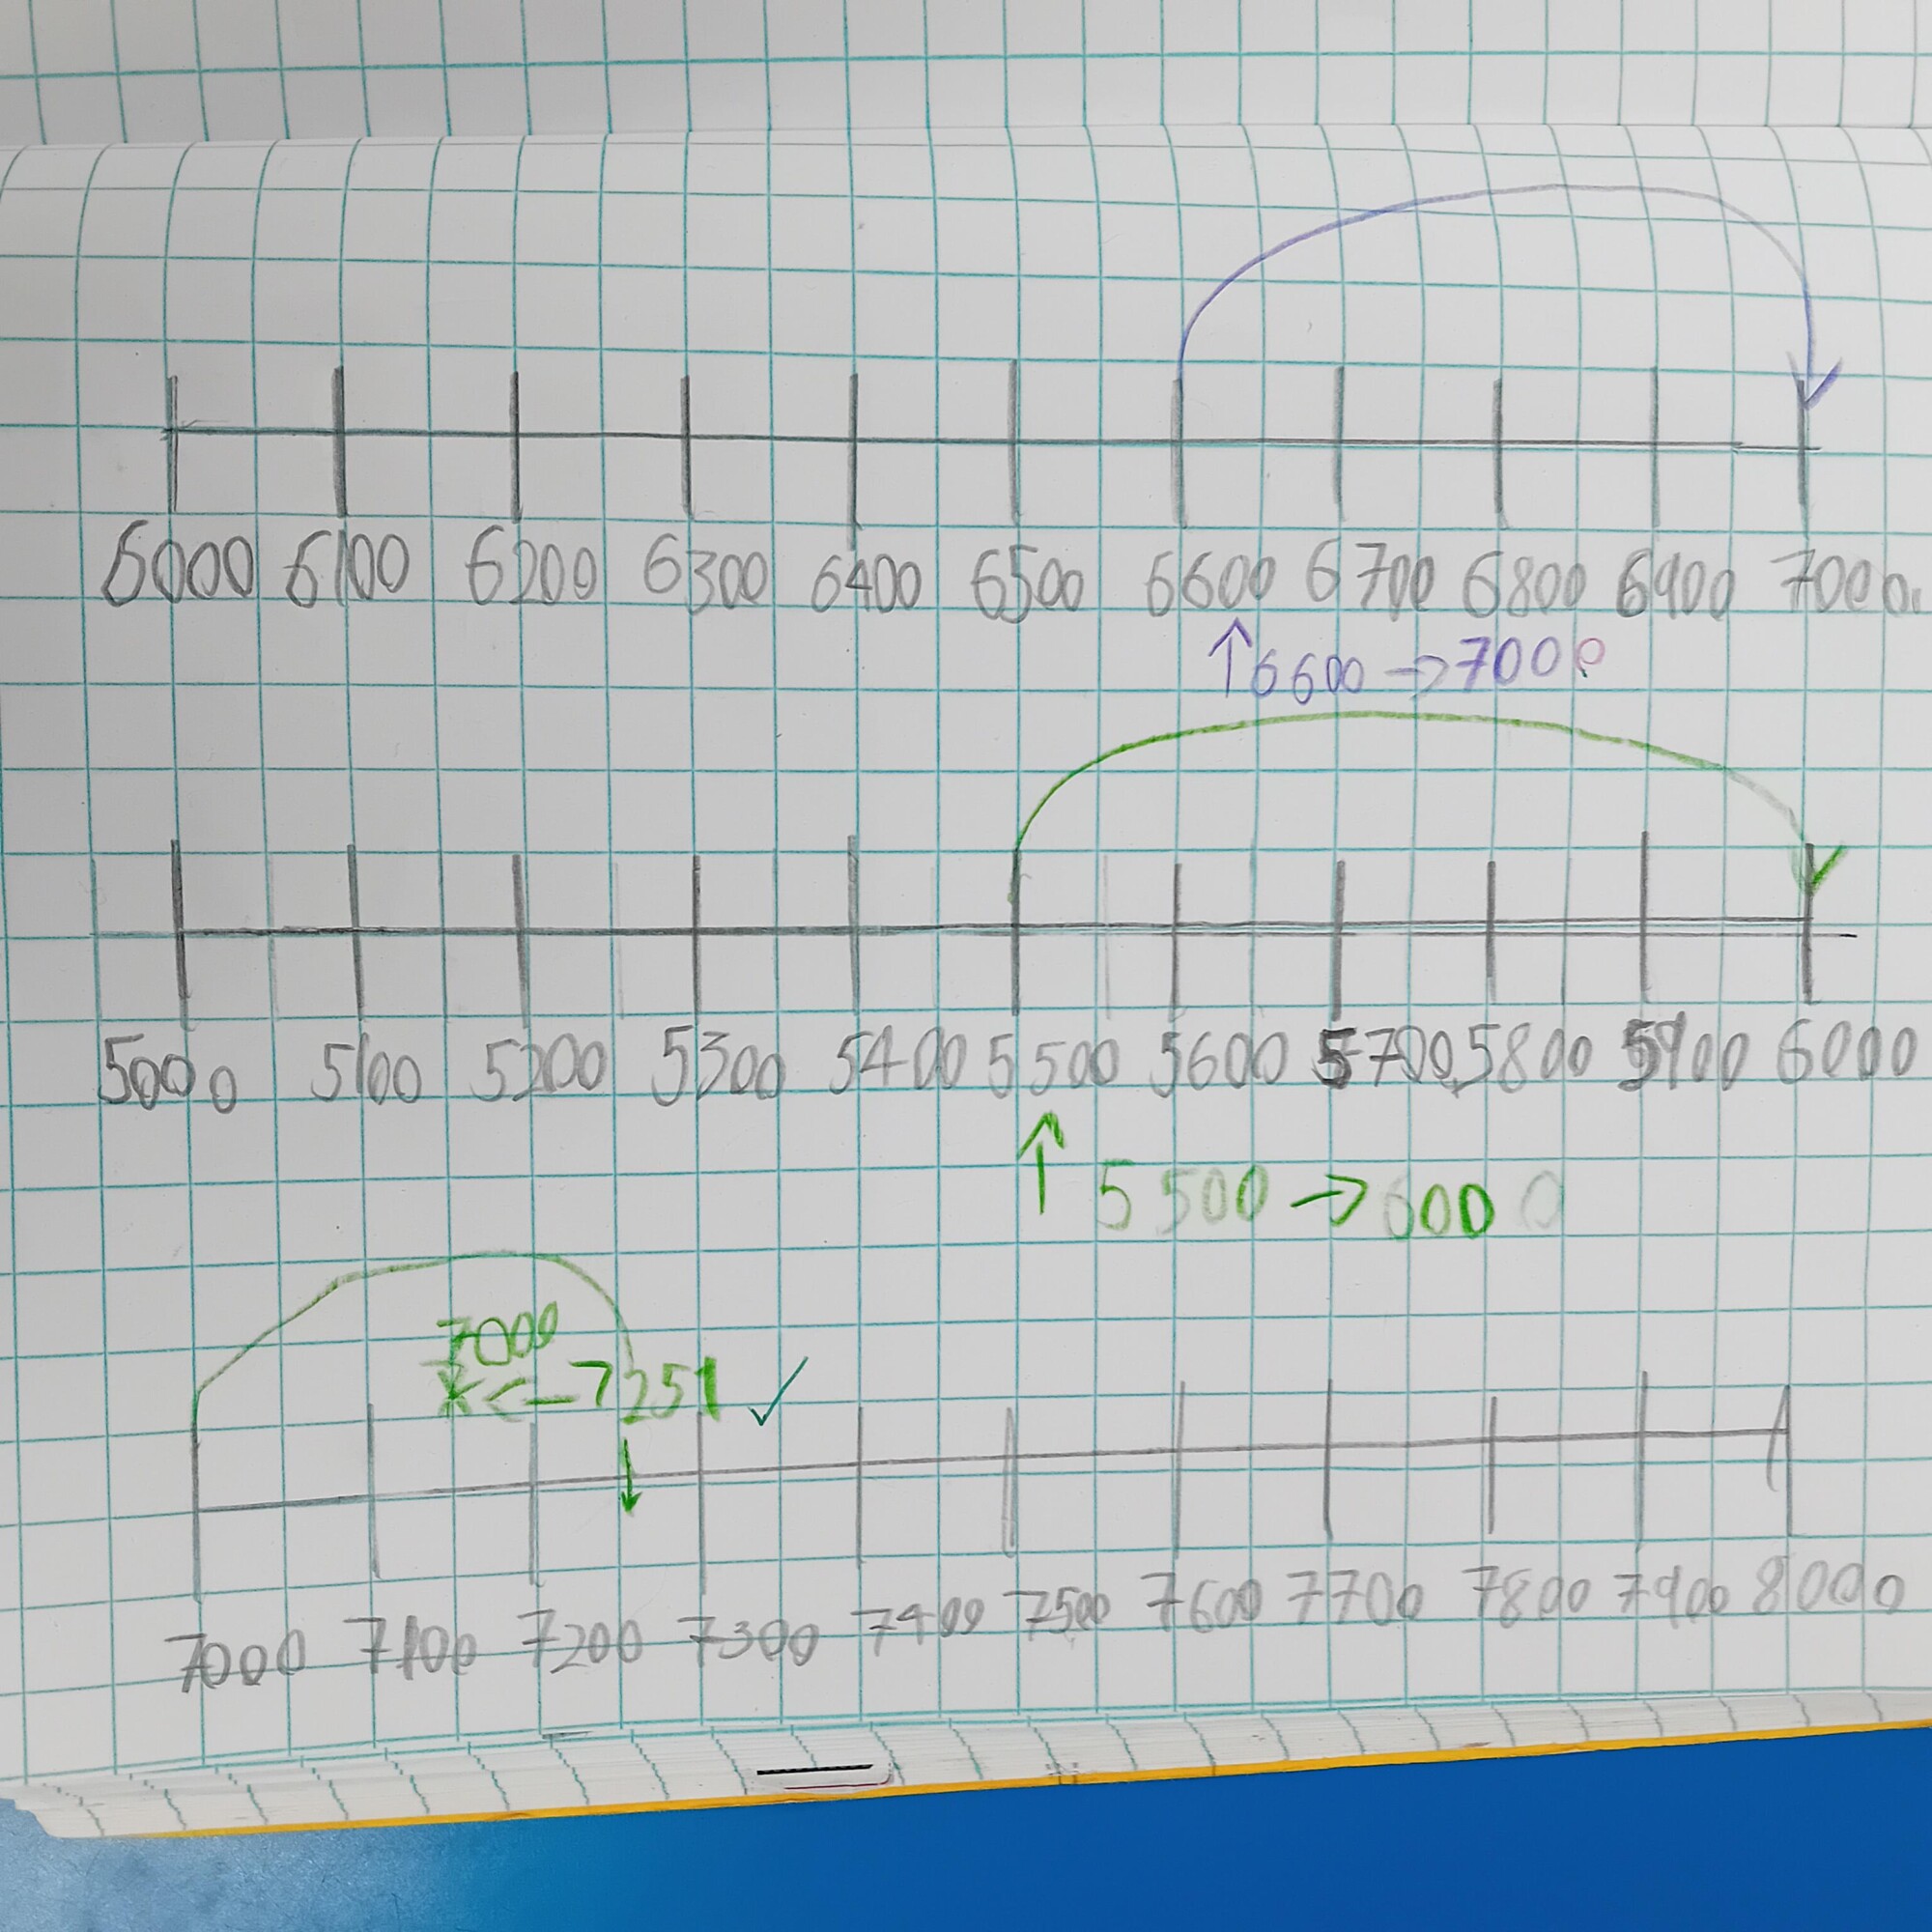 6000 6100 6200 6300 6400 6500 6600 6700 6800 6900 7000
↑6600 → 7000
5000 5100 5200 5300 5400 5500 5600 5700 5800 5900 6000
↑ 5500 → 6000
7000
← 7251 ✓
7000 7100 7200 7300 7400 7500 7600 7700 7800 7900 8000